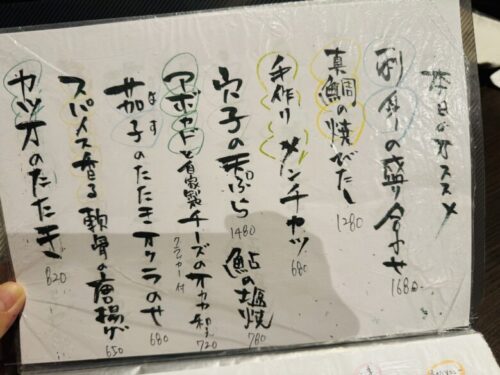 本日のオススメ
刺身の盛り合わせ 1680
真鯛の焼びたし 1280
手作り メンチカツ 680
穴子の天ぷら 1480
鮎の塩焼 780
アボカドと自家製チーズのオカカ和え 720
クラッカー付
茄子のたたきオクラのせ 680
なす
スパイス香る 軟骨の唐揚げ 650
カツオのたたき 820